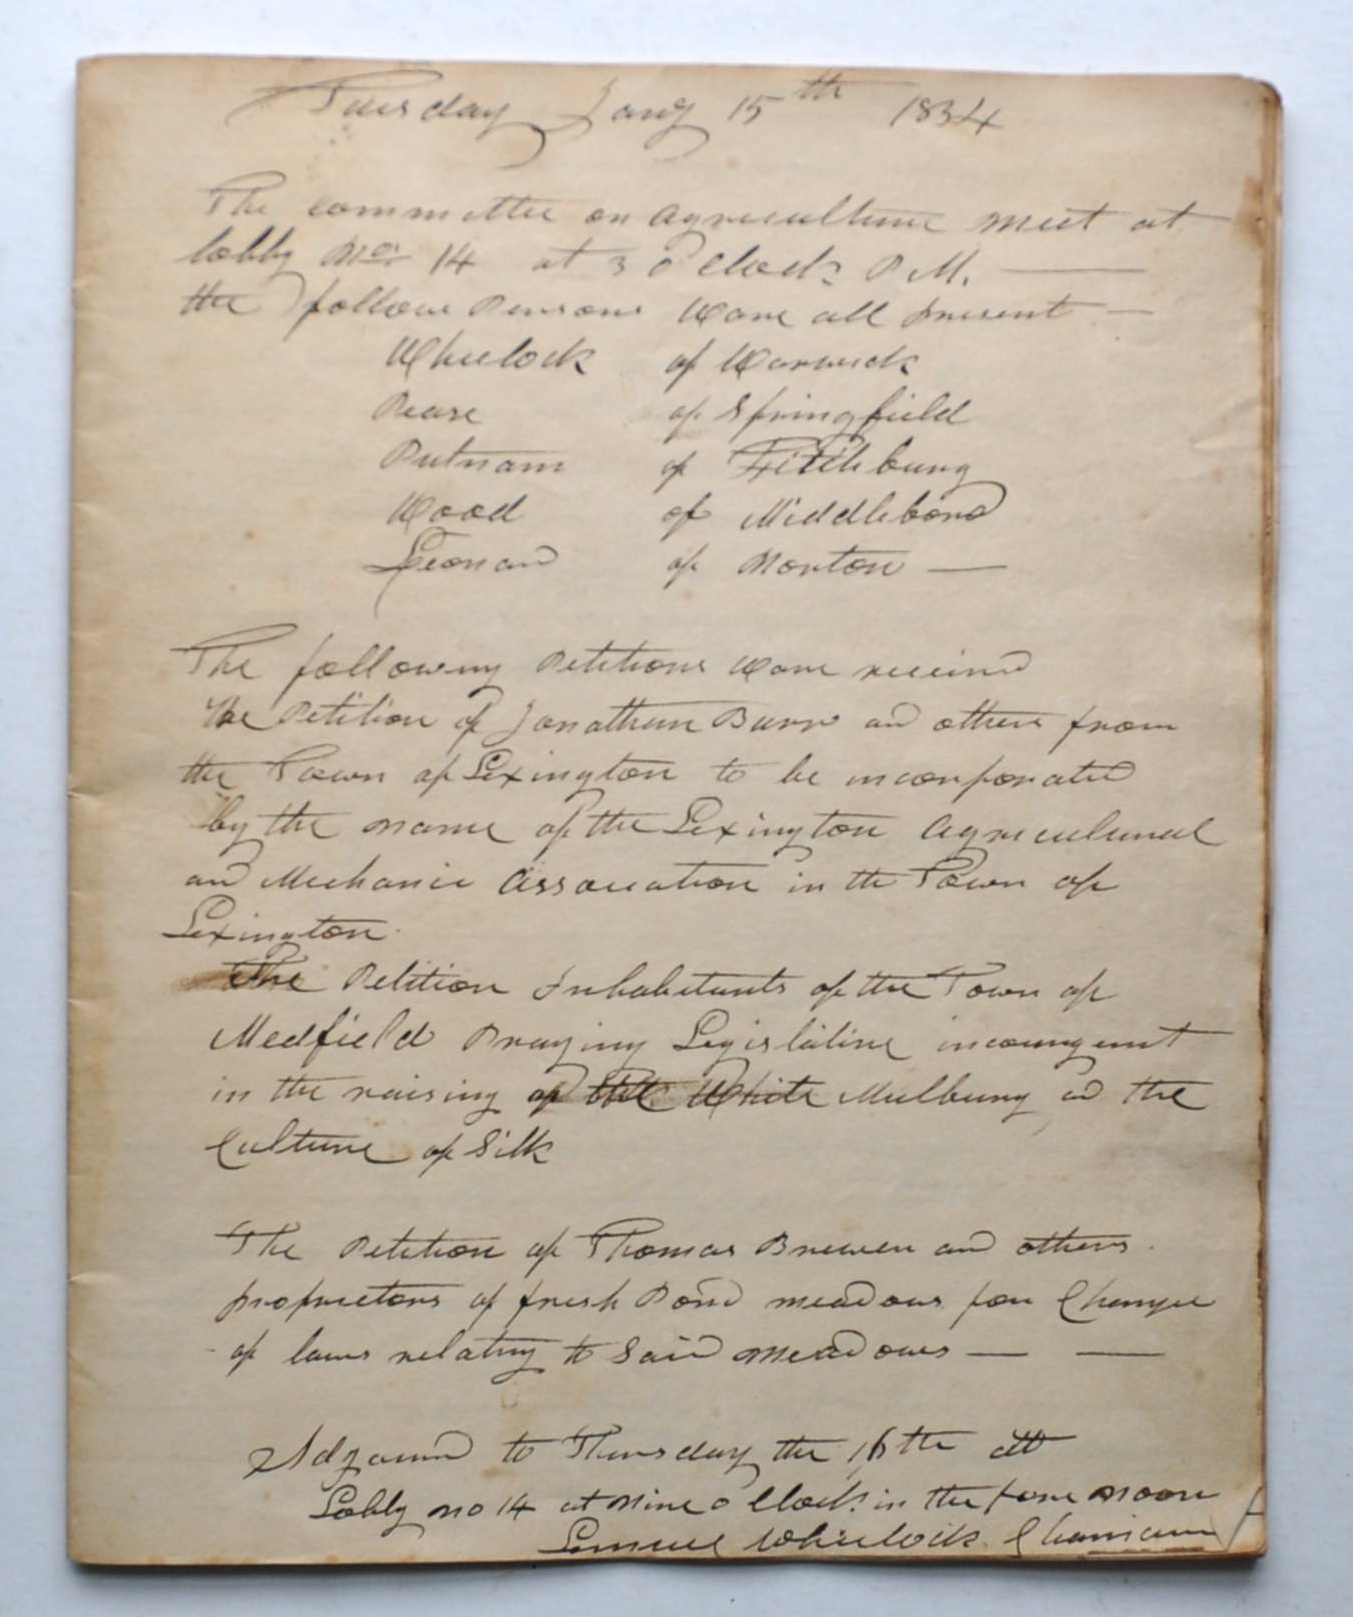 Tuesday Jany 15th 1834
The committee on Agriculture meet at
lobby No. 14 at 3 o Clock P.M. —
the follow Persons Ware all present —
Wheelock of Warwick
Pease of Springfield
Putnam of Fitchburg
Wood of Middleboro
Leonard of Norton —
The following Petitions Ware received
the Petition of Jonathan Burr and others from
the Town of Lexington to be incorporated
by the name of the Lexington Agricultural
and Mechanic Association in the Town of
Lexington.
The Petition Inhabitants of the Town of
Medfield Praying Legislative incouragment
in the raising of the White Mulbury and the
Culture of Silk
The Petition of Thomas Brewer and others
proprietors of fresh Pond meadows for Change
of laws relating to Said meadows — —
Adjourned to Thursday the 16th att
Lobby no 14 at Nine o Clock in the fore Noon
Lemuel Wheelock Chairman